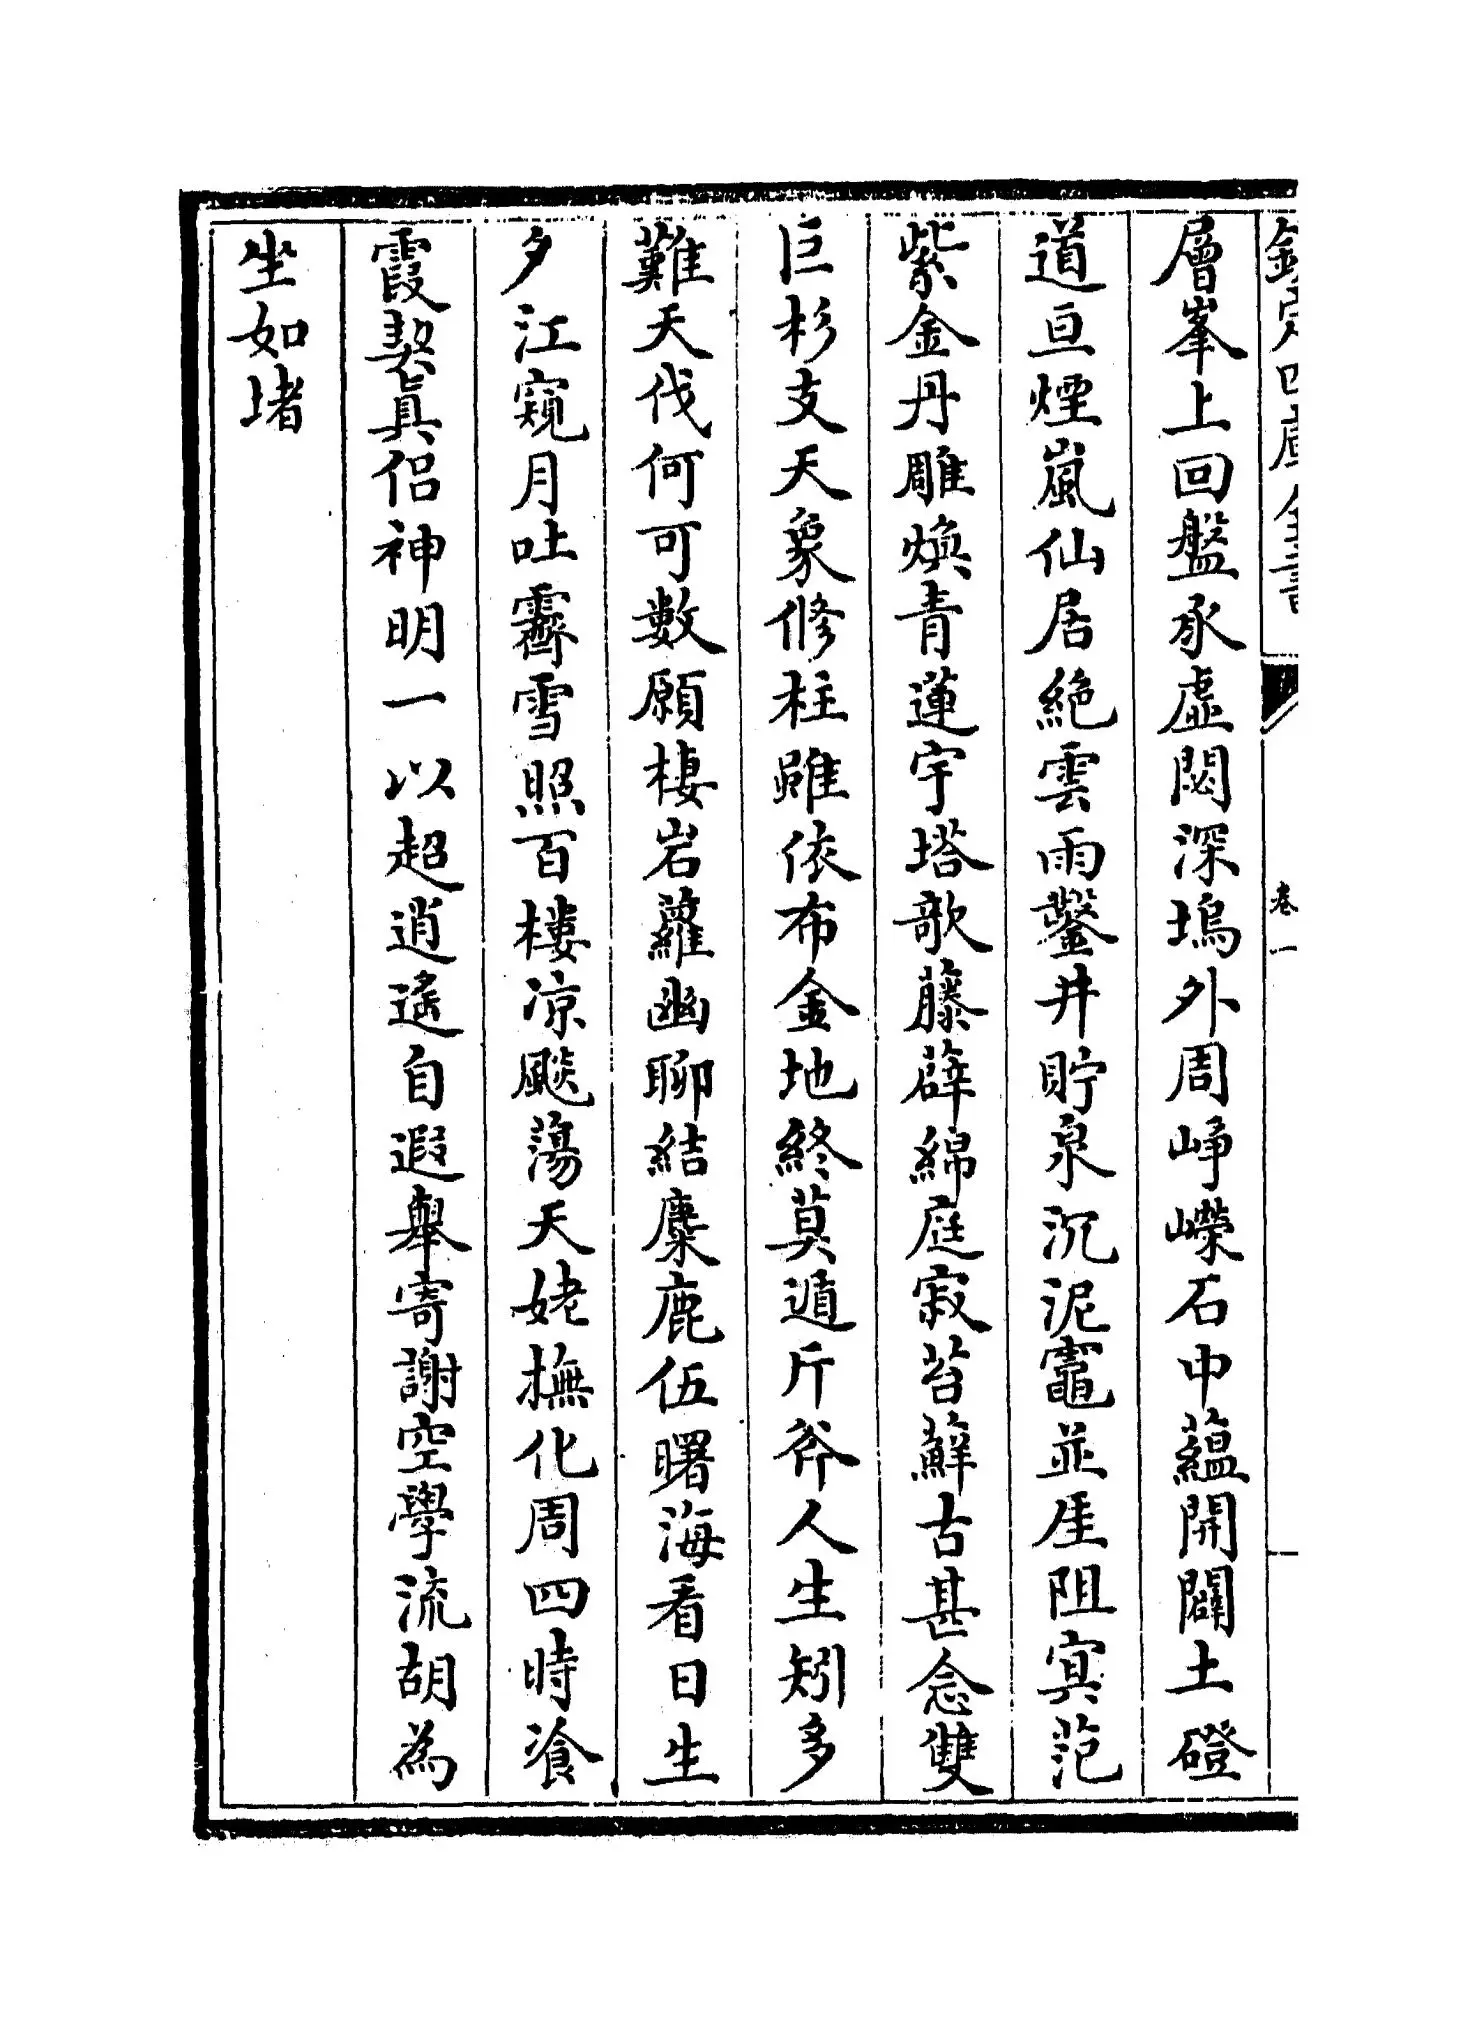 欽定四庫全書
卷一
層峯上回盤承虛閟深塢外周崢嶸石中蘊開闢土磴
道亘煙嵐仙居絶雲雨鑿井貯泉沉泥竈並厓阻寘范
紫金丹雕煥青蓮宇塔欹藤薜綿庭寂苔蘚古甚念雙
巨杉支天象修柱雖依布金地終莫遁斤斧人生矧多
難天伐何可數願棲岩蘿幽聊結麋鹿伍曙海看日生
夕江窺月吐霽雪照百樓凉颷蕩天姥撫化周四時飡
霞契真侣神明一以超逍遙自遐舉寄謝空學流胡為
坐如堵